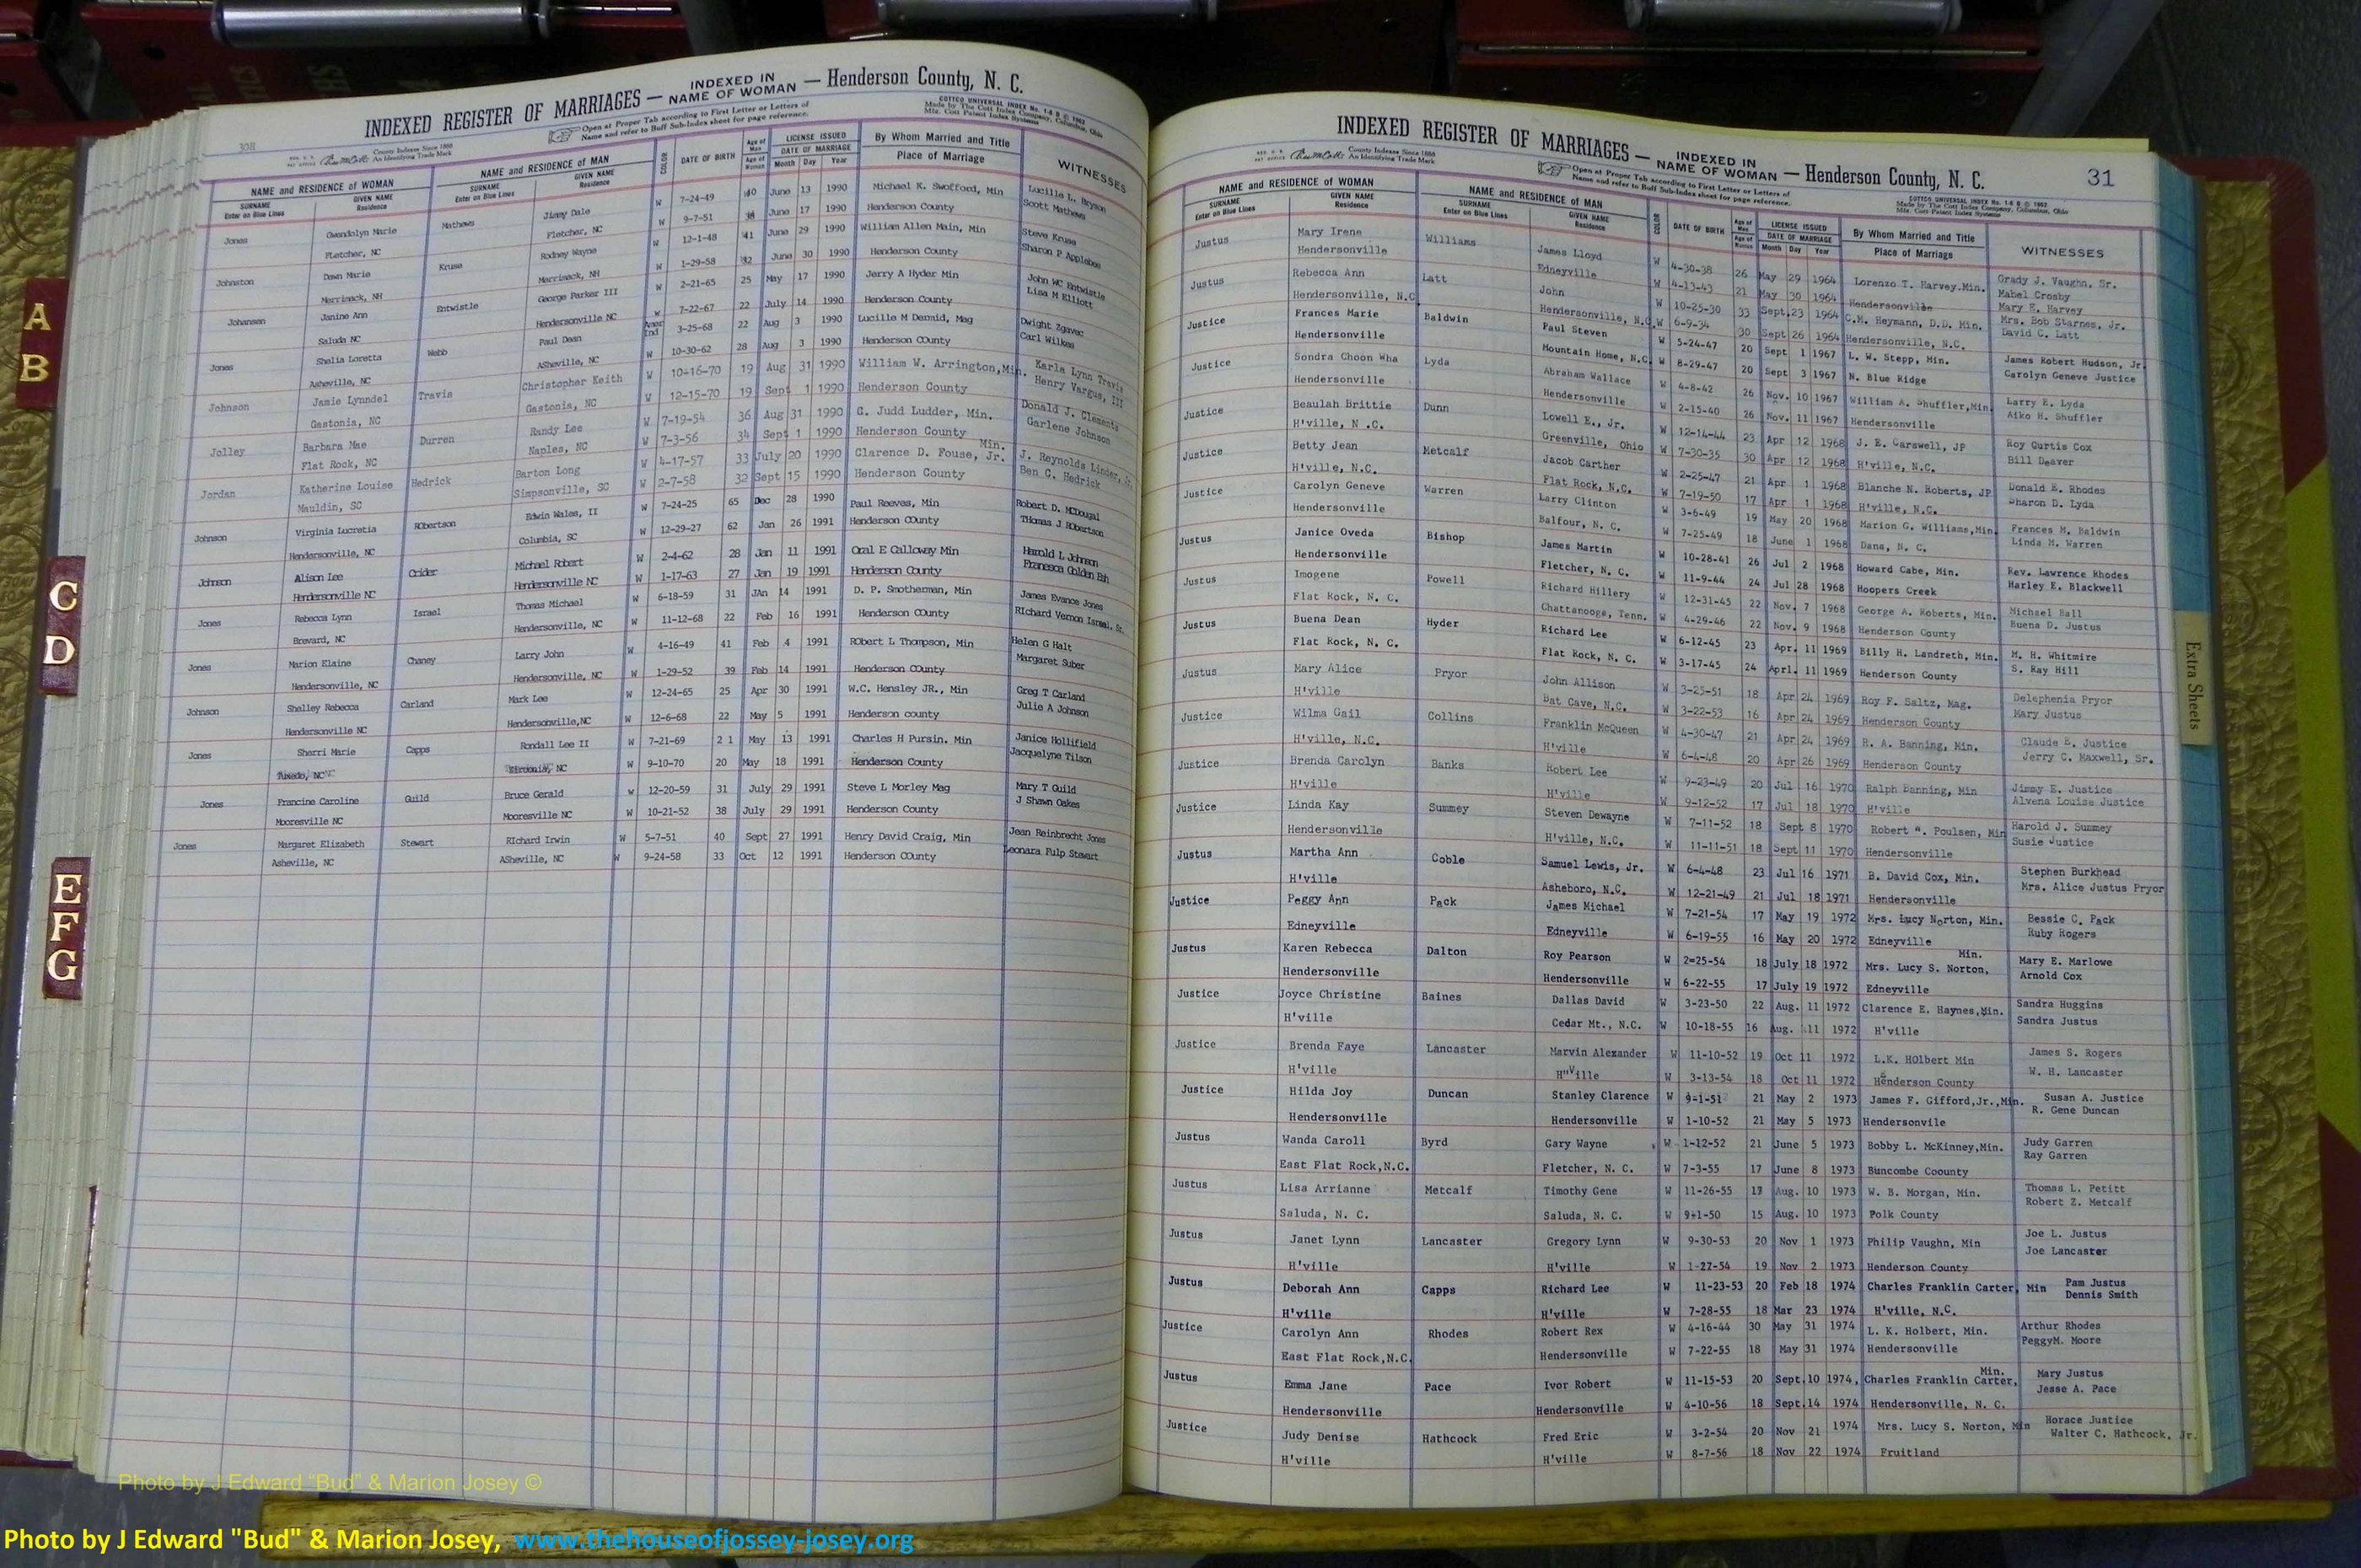 INDEXED REGISTER OF MARRIAGES — INDEXED IN NAME OF WOMAN — Henderson County, N. C.
Open at Proper Tab according to First Letter or Letters of
Name and refer to Buff Sub-Index sheet for page reference.
NAME and RESIDENCE OF WOMAN NAME and RESIDENCE OF MAN COLOR DATE OF BIRTH Age of Man LICENSE ISSUED By Whom Married and Title WITNESSES
SURNAME GIVEN NAME SURNAME GIVEN NAME Age of Woman DATE OF MARRIAGE Place of Marriage
Enter on Blue Lines Residence Enter on Blue Lines Residence Month Day Year
Jones Gwendolyn Marie Mathews Jimmy Dale W 7-24-49 40 June 13 1990 Michael K. Swofford, Min Lucille L. Bryson
Fletcher, NC Fletcher, NC W 9-7-51 38 June 17 1990 Henderson County Scott Mathews
Johnston Dawn Marie Kruse Rodney Wayne W 12-1-48 41 June 29 1990 William Allen Main, Min Steve Kruse
Merrimack, NH Merrimack, NH W 1-29-58 32 June 30 1990 Henderson County Sharon P Applebee
Johansen Janine Ann Entwistle George Parker III W 2-21-65 25 May 17 1990 Jerry A Hyder Min John WC Entwistle
Saluda NC Hendersonville NC W 7-22-67 22 July 14 1990 Henderson County Lisa M Elliott
Jones Shelia Loretta Webb Paul Dean Amer Ind 3-25-68 22 Aug 3 1990 Lucille M Dermid, Mag Dwight Zgavec
Asheville, NC Asheville, NC W 10-30-62 28 Aug 3 1990 Henderson County Carl Wilkes
Johnson Jamie Lynndel Travis Christopher Keith W 10-16-70 19 Aug 31 1990 William W. Arrington, Min. Karla Lynn Travis
Gastonia, NC Gastonia, NC W 12-15-70 19 Sept 1 1990 Henderson County Henry Vargus, III
Jolley Barbara Mae Durren Randy Lee W 7-19-54 36 Aug 31 1990 G. Judd Ludder, Min. Donald J. Clements
Flat Rock, NC Naples, NC W 7-3-56 34 Sept 1 1990 Henderson County Garlene Johnson
Jordan Katherine Louise Hedrick Barton Long W 4-17-57 33 July 20 1990 Clarence D. Fouse, Jr. Min. J. Reynolds Linder, Sr.
Mauldin, SC Simpsonville, SC W 2-7-58 32 Sept 15 1990 Henderson County Ben C. Hedrick
Johnson Virginia Lucretia RObertson Edwin Wales, II W 7-24-25 65 Dec 28 1990 Paul Reeves, Min Robert D. McDougal
Hendersonville, NC Columbia, SC W 12-29-27 62 Jan 26 1991 Henderson COunty Thomas J RObertson
Johnson Alison Lee Crider Michael Robert W 2-4-62 28 Jan 11 1991 Oral E Calloway Min Harold L Johnson
Hendersonville NC Hendersonville NC W 1-17-63 27 Jan 19 1991 Henderson COunty Franesca Golden Esh
Jones Rebecca Lynn Israel Thomas Michael W 6-18-59 31 JAn 14 1991 D. P. Smotherman, Min James Evance Jones
Brevard, NC Hendersonville, NC W 11-12-68 22 Feb 16 1991 Henderson COunty RIchard Vernon Israel, Sr.
Jones Marion Elaine Chaney Larry John W 4-16-49 41 Feb 4 1991 RObert L Thompson, Min Helen G Halt
Hendersonville, NC Hendersonville, NC W 1-29-52 39 Feb 14 1991 Henderson COunty Margaret Suber
Johnson Shelley Rebecca Garland Mark Lee W 12-24-65 25 Apr 30 1991 W.C. Hensley JR., Min Greg T Garland
Hendersonville NC Hendersonville,NC W 12-6-68 22 May 5 1991 Henderson county Julie A Johnson
Jones Sherri Marie Capps Rondall Lee II W 7-21-69 2 1 May 13 1991 Charles H Pursin. Min Janice Hollifield
Tuxedo, NC NC W 9-10-70 20 May 18 1991 Henderson County Jacquelyne Tilson
Jones Francine Caroline Guild Bruce Gerald W 12-20-59 31 July 29 1991 Steve L Morley Mag Mary T Guild
Mooresville NC Mooresville NC W 10-21-52 38 July 29 1991 Henderson County J Shawn Oakes
Jones Margaret Elizabeth Stewart RIchard Irwin W 5-7-51 40 Sept 27 1991 Henry David Craig, Min Jean Reinbrecht Jones
Asheville, NC ASheville, NC W 9-24-58 33 Oct 12 1991 Henderson COunty Leonara Fulp Stewart
INDEXED REGISTER OF MARRIAGES — INDEXED IN NAME OF WOMAN — Henderson County, N. C. 31
Open at Proper Tab according to First Letter or Letters of
Name and refer to Buff Sub-Index sheet for page reference.
NAME and RESIDENCE OF WOMAN NAME and RESIDENCE OF MAN COLOR DATE OF BIRTH Age of Man LICENSE ISSUED By Whom Married and Title WITNESSES
SURNAME GIVEN NAME SURNAME GIVEN NAME Age of Woman DATE OF MARRIAGE Place of Marriage
Enter on Blue Lines Residence Enter on Blue Lines Residence Month Day Year
Justus Mary Irene Williams James Lloyd W 4-30-38 26 May 29 1964 Lorenzo T. Harvey.Min. Grady J. Vaughn, Sr.
Hendersonville Edneyville W 4-13-43 21 May 30 1964 Hendersonville Mabel Crosby
Mary E. Harvey
Justus Rebecca Ann Latt John W 10-25-30 33 Sept.23 1964 C.M. Heymann, D.D. Min. Mrs. Bob Starnes, Jr.
Hendersonville, N.C Hendersonville, N.C. W 6-9-34 30 Sept 26 1964 Hendersonville, N.C. David C. Latt
Justice Frances Marie Baldwin Paul Steven W 5-24-47 20 Sept 1 1967 L. W. Stepp, Min. James Robert Hudson, Jr.
Hendersonville Mountain Home, N.C. W 8-29-47 20 Sept 3 1967 N. Blue Ridge Carolyn Geneve Justice
Justice Sondra Choon Wha Lyda Abraham Wallace W 4-8-42 26 Nov. 10 1967 William A. Shuffler,Min. Larry E. Lyda
Hendersonville Hendersonville W 2-15-40 26 Nov. 11 1967 Hendersonville Aiko H. Shuffler
Justice Beaulah Brittie Dunn Lowell E., Jr. W 12-14-44 23 Apr 12 1968 J. E. Carswell, JP Roy Curtis Cox
H'ville, N .C. Greenville, Ohio W 7-30-35 30 Apr 12 1968 H'ville, N.C. Bill Deaver
Justice Betty Jean Metcalf Jacob Carther W 2-25-47 21 Apr 1 1968 Blanche N. Roberts, JP Donald E. Rhodes
H'ville, N.C. Flat Rock, N.C. W 7-19-50 17 Apr 1 1968 H'ville, N.C. Sharon D. Lyda
Justice Carolyn Geneve Warren Larry Clinton W 3-6-49 19 May 20 1968 Marion G. Williams,Min. Frances M. Baldwin
Hendersonville Balfour, N. C. W 7-25-49 18 June 1 1968 Dana, N. C. Linda M. Warren
Justus Janice Oveda Bishop James Martin W 10-28-41 26 Jul 2 1968 Howard Cabe, Min. Rev. Lawrence Rhodes
Hendersonville Fletcher, N. C. W 11-9-44 24 Jul 28 1968 Hoopers Creek Harley E. Blackwell
Justus Imogene Powell Richard Hillery W 12-31-45 22 Nov. 7 1968 George A. Roberts, Min. Michael Ball
Flat Rock, N. C. Chattanooga, Tenn. W 4-29-46 22 Nov. 9 1968 Henderson County Buena D. Justus
Justus Buena Dean Hyder Richard Lee W 6-12-45 23 Apr. 11 1969 Billy H. Landreth, Min. M. H. Whitmire
Flat Rock, N. C. Flat Rock, N. C. W 3-17-45 24 Aprl. 11 1969 Henderson County S. Ray Hill
Justus Mary Alice Pryor John Allison W 3-25-51 18 Apr 24 1969 Roy F. Saltz, Mag. Delephenia Pryor
H'ville Bat Cave, N.C. W 3-22-53 16 Apr 24 1969 Henderson County Mary Justus
Justice Wilma Gail Collins Franklin McQueen W 4-30-47 21 Apr 24 1969 R. A. Banning, Min. Claude E. Justice
H'ville, N.C. H'ville W 6-4-48 20 Apr 26 1969 Henderson County Jerry C. Maxwell, Sr.
Justice Brenda Carolyn Banks Robert Lee W 9-23-49 20 Jul 16 1970 Ralph Banning, Min Jimmy E. Justice
H'ville H'ville W 9-12-52 17 Jul 18 1970 H'ville Alvena Louise Justice
Justice Linda Kay Summey Steven Dewayne W 7-11-52 18 Sept 8 1970 Robert ". Poulsen, Min Harold J. Summey
Hendersonville H'ville, N.C. W 11-11-51 18 Sept 11 1970 Hendersonville Susie Justice
Justus Martha Ann Coble Samuel Lewis, Jr. W 6-4-48 23 Jul 16 1971 B. David Cox, Min. Stephen Burkhead
H'ville Asheboro, N.C. W 12-21-49 21 Jul 18 1971 Hendersonville Mrs. Alice Justus Pryor
Justice Peggy Ann Pack James Michael W 7-21-54 17 May 19 1972 Mrs. Lucy Norton, Min. Bessie C. Pack
Edneyville Edneyville W 6-19-55 16 May 20 1972 Edneyville Ruby Rogers
Justus Karen Rebecca Dalton Roy Pearson W 2=25-54 18 July 18 1972 Mrs. Lucy S. Norton, Min. Mary E. Marlowe
Hendersonville Hendersonville W 6-22-55 17 July 19 1972 Edneyville Arnold Cox
Justice Joyce Christine Baines Dallas David W 3-23-50 22 Aug. 11 1972 Clarence E. Haynes,Min. Sandra Huggins
H'ville Cedar Mt., N.C. W 10-18-55 16 Aug. 11 1972 H'ville Sandra Justus
Justice Brenda Faye Lancaster Marvin Alexander W 11-10-52 19 Oct 11 1972 L.K. HOlbert Min James S. Rogers
H'ville H'Ville W 3-13-54 18 Oct 11 1972 Henderson County W. H. Lancaster
Justice Hilda Joy Duncan Stanley Clarence W 9-1-51 21 May 2 1973 James F. Gifford,Jr.,Min. Susan A. Justice
Hendersonville Hendersonville W 1-10-52 21 May 5 1973 Hendersonvile R. Gene Duncan
Justus Wanda Caroll Byrd Gary Wayne W 1-12-52 21 June 5 1973 Bobby L. McKinney,Min. Judy Garren
East Flat Rock,N.C. Fletcher, N. C. W 7-3-55 17 June 8 1973 Buncombe Coounty Ray Garren
Justus Lisa Arrianne Metcalf Timothy Gene W 11-26-55 17 Aug. 10 1973 W. B. Morgan, Min. Thomas L. Petitt
Saluda, N. C. Saluda, N. C. W 9-1-50 15 Aug. 10 1973 Polk County Robert Z. Metcalf
Justus Janet Lynn Lancaster Gregory Lynn W 9-30-53 20 Nov 1 1973 Philip Vaughn, Min Joe L. Justus
H'ville H'ville W 1-27-54 19 Nov 2 1973 Henderson County Joe Lancaster
Justus Deborah Ann Capps Richard Lee W 11-23-53 20 Feb 18 1974 Charles Franklin Carter, Min Pam Justus
H'ville H'ville W 7-28-55 18 Mar 23 1974 H'ville, N.C. Dennis Smith
Justice Carolyn Ann Rhodes Robert Rex W 4-16-44 30 May 31 1974 L. K. Holbert, Min. Arthur Rhodes
East Flat Rock,N.C. Hendersonville W 7-22-55 18 May 31 1974 Hendersonville PeggyM. Moore
Justus Emma Jane Pace Ivor Robert W 11-15-53 20 Sept.10 1974, Charles Franklin Carter, Min. Mary Justus
Hendersonville Hendersonville W 4-10-56 18 Sept.14 1974 Hendersonville, N. C. Jesse A. Pace
Justice Judy Denise Hathcock Fred Eric W 3-2-54 20 Nov 21 1974 Mrs. Lucy S. Norton, Min Horace Justice
H'ville H'ville W 8-7-56 18 Nov 22 1974 Fruitland Walter C. Hathcock, Jr.
A
B
C
D
E
F
G
Extra Sheets
Photo by J Edward "Bud" & Marion Josey ©
Photo by J Edward "Bud" & Marion Josey, www.thehouseofjossey-josey.org